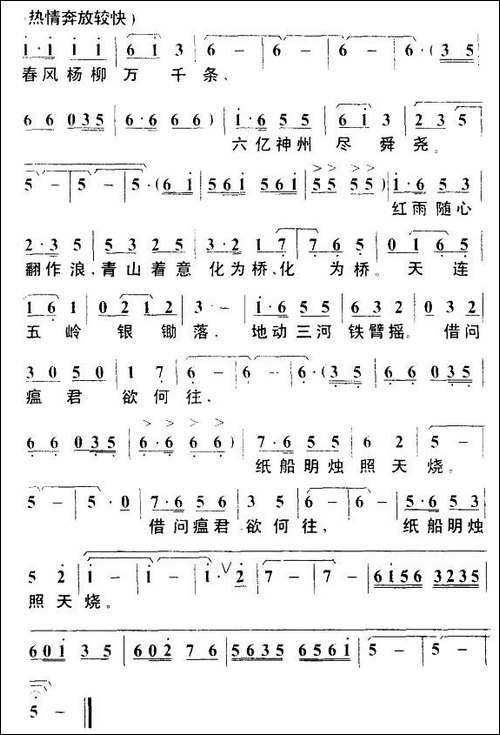 热情奔放较快)
i·i i i | 6 i 3 | 6 - | 6 - | 6 - | 6·(3 5
春风杨柳 万 千条、
6 6 0 3 5 | 6·6 6 6) | i·6 5 5 | 6 i 3 | 2 3 5
六亿神州 尽 舜 尧。
5 - | 5 - | 5·(6 i | 5 6 i 5 6 i | 5 5 5 5) | i·6 5 3
红雨随心
2·3 5 | 5 5 3 2 5 | 3·2 1 7 | 7 6 5 | 0 1 6 5
翻作浪、青山着意 化为桥、化 为桥。天连
1 6 1 | 0 2 1 2 | 3 - | i·6 5 5 | 6 3 2 | 0 3 2
五岭 银锄落、地动三河 铁臂摇。借问
3 0 5 0 | 1 7 | 6 - | 6 - | 6·(3 5 | 6 6 0 3 5
瘟君 欲何往、
6 6 0 3 5 | 6·6 6 6) | 7·6 5 5 | 6 2 | 5 -
纸船明烛 照天烧。
5 - | 5·0 | 7·6 5 6 | 3 5 | 6 - | 6 - | 5·6 5 3
借问瘟君 欲何往、 纸船明烛
5 2 | i - | i - | i· 2 | 7 - | 7 - | 6 i 5 6 3 2 3 5
照天烧。
6 0 i 3 5 | 6 0 2 7 6 | 5 6 3 5 6 5 6 i | 5 - | 5 -
5 -